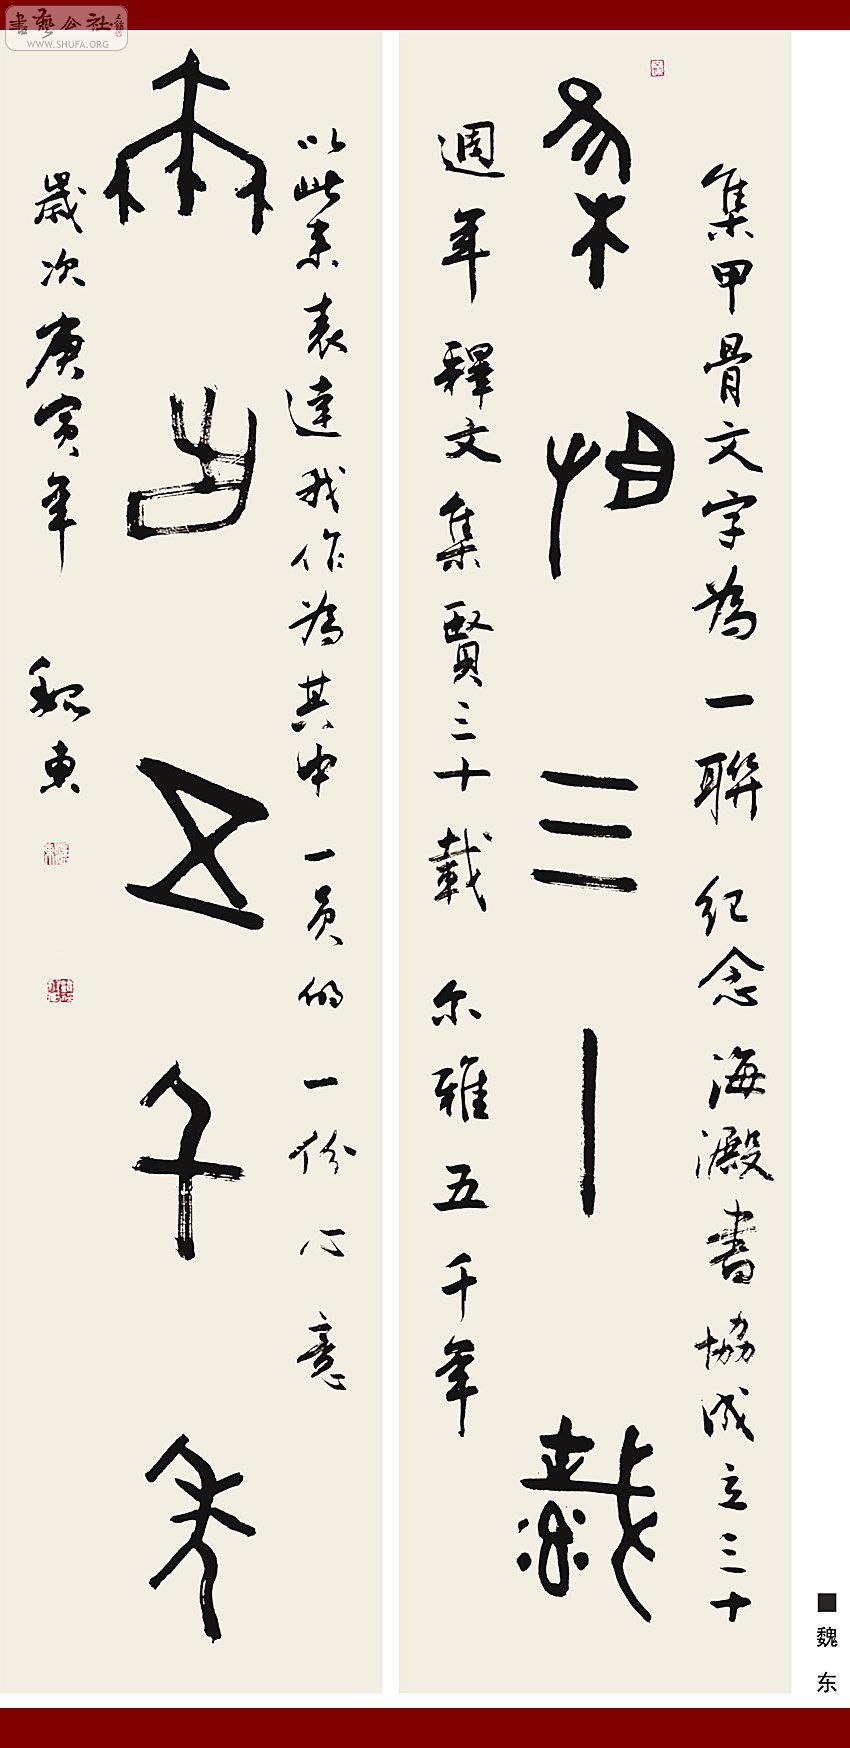 書藝公社
WWW.SHUFA.ORG
集甲骨文字為一聯 纪念海澱書協成立三十
集賢三十載
週年 釋文 集賢三十載 尔雅五千年
以此来表達我作為其中一員的一份心意
尔雅五千年
歲次庚寅年 魏東
■魏东